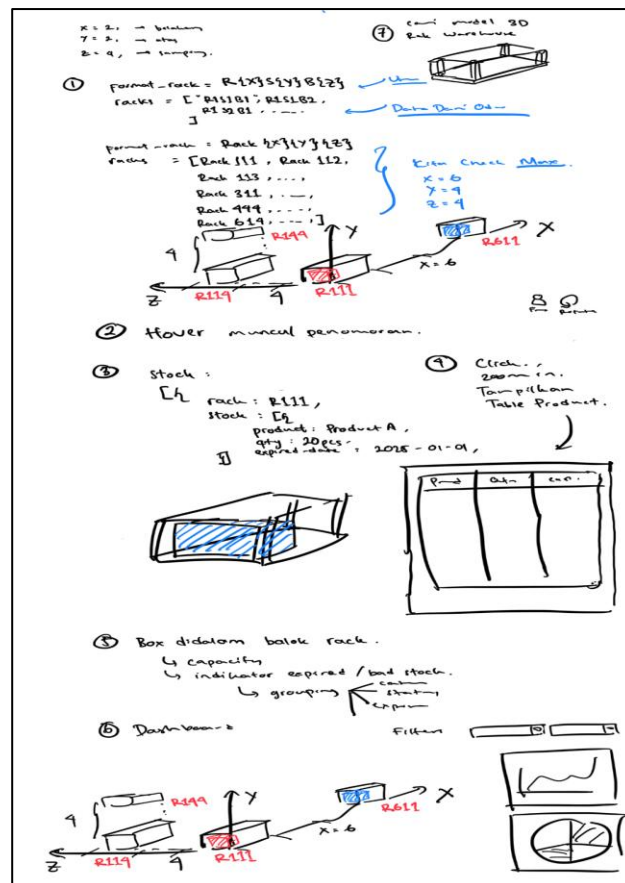 x = 2, → belakang
Y = 2, → atas
Z = 4, → samping.
⑦ Cari model 3D
Rak Warehouse
① format_rack = R{X}S{Y}B{Z}
racks = ["R1S1B1", R1S1B2,
R1S2B1, .....
]
Data Dari Odoo
format_rack = Rack {X}{Y}{Z}
racks = [Rack 111, Rack 112,
Rack 113, ...,
Rack 311, ...,
Rack 444, ....,
Rack 614, ....,]
Kita Check Max.
X = 6
Y = 4
Z = 4
R144
Y
X
R611
4
x = 6
Z
R114
4
R111
② Hover muncul penomoran.
③ Stock :
[{
rack : R111,
stock : [{
product : Product A,
qty : 20 pcs.
expired_date : 2025-01-01,
}]
④ Click.,
zoom in.
Tampilkan
Table Product.
Prod
⑤ Box didalam balok rack.
↳ capacity
↳ indikator expired / bad stock.
↳ grouping
⑥ Dashboard
Filter
R144
Y
X
R611
4
x = 6
Z
R114
4
R111